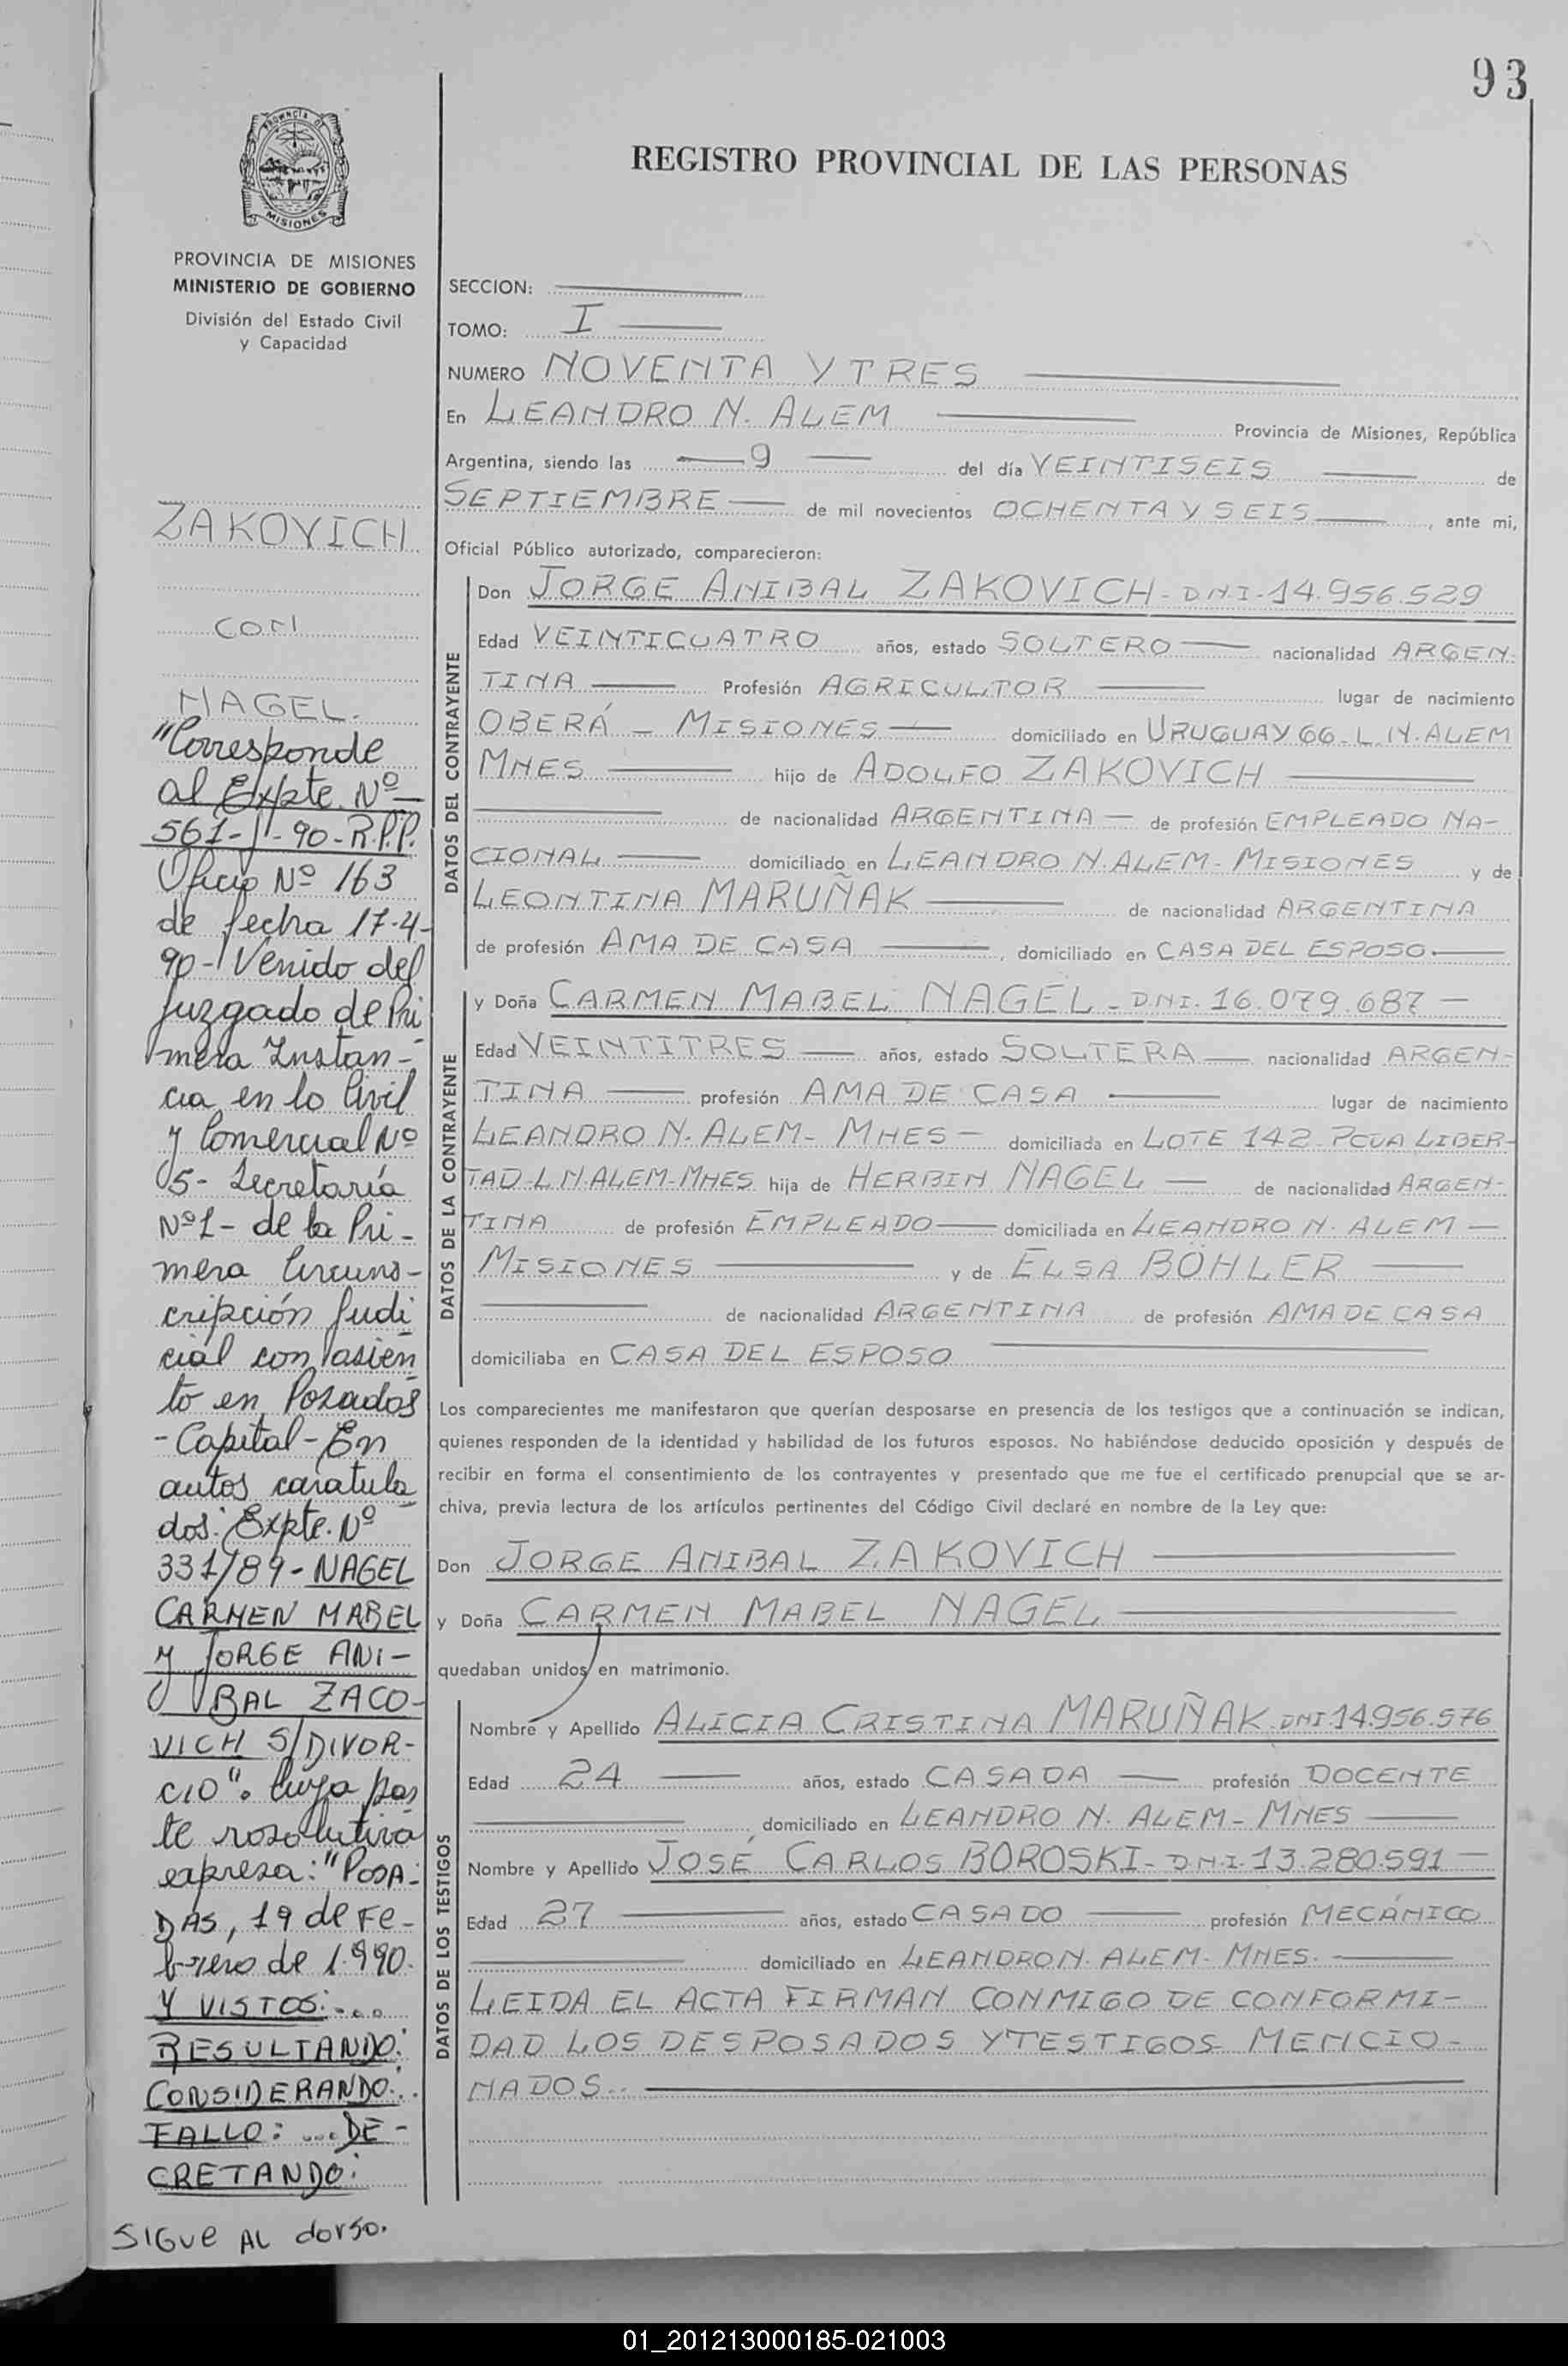 93
PROVINCIA DE
MISIONES
PROVINCIA DE MISIONES
MINISTERIO DE GOBIERNO
División del Estado Civil
y Capacidad
ZAKOVICH
CON
NAGEL.
"Corresponde
al Expte. Nº
561-J-90-R.P.P.
Oficio Nº 163
de fecha 17-4-
90-Venido del
Juzgado de Pri
mera Instan-
cia en lo Civil
y Comercial Nº
5- Secretaría
Nº1- de la Pri-
mera Circuns-
cripción Judi
cial con asien
to en Posadas
-Capital-En
autos caratula
dos: Expte. Nº
331/89-NAGEL
CARMEN MABEL
y JORGE ANI-
BAL ZACO-
VICH S/DIVOR-
CIO". Cuya par
te rosolutiva
expresa: "POSA-
DAS, 19 de Fe-
brero de 1.990.
Y VISTOS:...
RESULTANDO:
CONSIDERANDO:..
FALLO: ...DE-
CRETANDO:
SIGUE AL dorso.
REGISTRO PROVINCIAL DE LAS PERSONAS
SECCION:
TOMO: I
NUMERO NOVENTA Y TRES
En LEANDRO N. ALEM Provincia de Misiones, República
Argentina, siendo las 9 del día VEINTISEIS de
SEPTIEMBRE de mil novecientos OCHENTA Y SEIS, ante mi,
Oficial Público autorizado, comparecieron:
DATOS DEL CONTRAYENTE
Don JORGE ANIBAL ZAKOVICH - DNI-14.956.529
Edad VEINTICUATRO años, estado SOLTERO nacionalidad ARGEN-
TINA Profesión AGRICULTOR lugar de nacimiento
OBERÁ - MISIONES domiciliado en URUGUAY 66-L.N.ALEM
MNES hijo de ADOLFO ZAKOVICH
de nacionalidad ARGENTINA de profesión EMPLEADO NA-
CIONAL domiciliado en LEANDRO N.ALEM-MISIONES y de
LEONTINA MARUÑAK de nacionalidad ARGENTINA
de profesión AMA DE CASA, domiciliado en CASA DEL ESPOSO.
DATOS DE LA CONTRAYENTE
y Doña CARMEN MABEL NAGEL - DNI. 16.079.687
Edad VEINTITRES años, estado SOLTERA nacionalidad ARGEN-
TINA profesión AMA DE CASA lugar de nacimiento
LEANDRO N. ALEM- MNES- domiciliada en LOTE 142-PCIA LIBER-
TAD-L N.ALEM-MNES hija de HERBIN NAGEL de nacionalidad ARGEN-
TINA de profesión EMPLEADO domiciliada en LEANDRO N. ALEM-
MISIONES y de ELSA BÖHLER
de nacionalidad ARGENTINA de profesión AMA DE CASA
domiciliaba en CASA DEL ESPOSO
Los comparecientes me manifestaron que querían desposarse en presencia de los testigos que a continuación se indican,
quienes responden de la identidad y habilidad de los futuros esposos. No habiéndose deducido oposición y después de
recibir en forma el consentimiento de los contrayentes y presentado que me fue el certificado prenupcial que se ar-
chiva, previa lectura de los artículos pertinentes del Código Civil declaré en nombre de la Ley que:
Don JORGE ANIBAL ZAKOVICH
y Doña CARMEN MABEL NAGEL
quedaban unidos en matrimonio.
DATOS DE LOS TESTIGOS
Nombre y Apellido ALICIA CRISTINA MARUÑAK DNI-14.956.576
Edad 24 años, estado CASADA profesión DOCENTE
, domiciliado en LEANDRO N. ALEM-MNES
Nombre y Apellido JOSÉ CARLOS BOROSKI-DNI-13.280.591
Edad 27 años, estado CASADO profesión MECÁNICO
domiciliado en LEANDRO N. ALEM-MNES.
LEIDA EL ACTA FIRMAN CONMIGO DE CONFORMI-
DAD LOS DESPOSADOS Y TESTIGOS MENCIO-
NADOS..
01_201213000185-021003